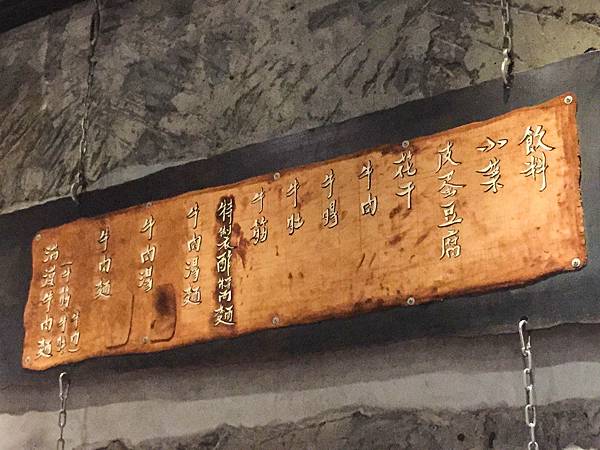 飲料
小菜
皮蛋豆腐
花干
牛肉
牛腸
牛肚
牛筋
特製酢醬麵
牛肉湯麵
牛肉湯
牛肉麵
牛肉麵
(牛筋 牛肚 牛肉)